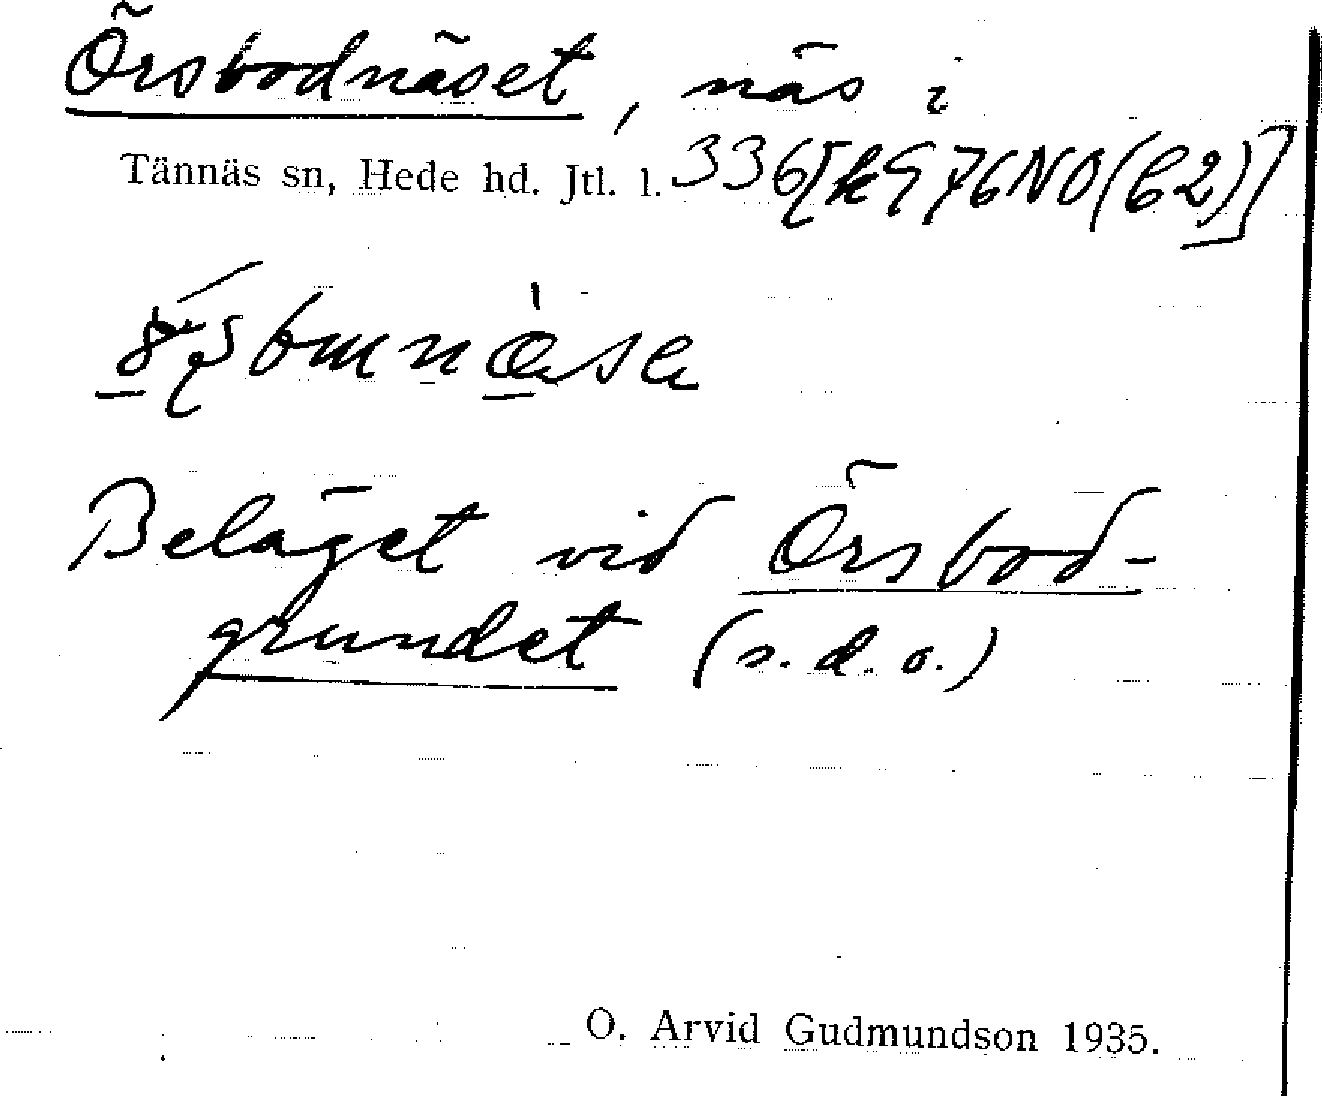 Örsbodnäset, näs i
Tännäs sn, Hede hd. Jtl. l. 336[k976NO(C2)]
Beläget vid Örsbod-
grundet (s.d.o.)
O. Arvid Gudmundson 1935.